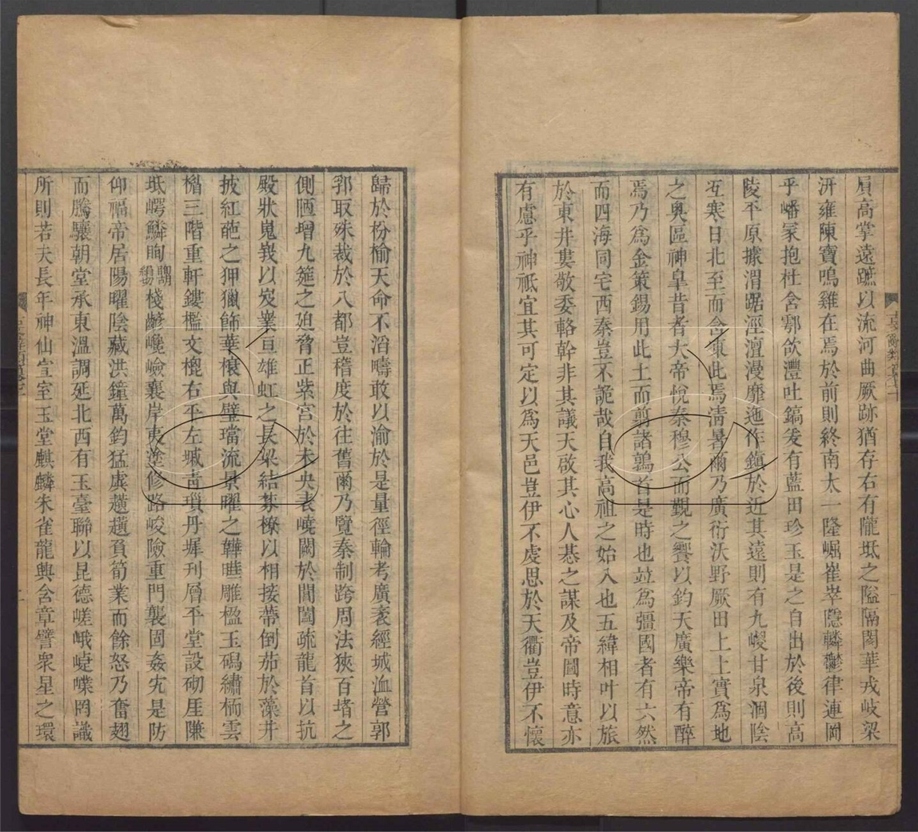 屓高掌遠蹠以流河曲厥跡猶存右有隴坻之隘隔閡華戎岐梁
汧雍陳寶鳴雞在焉於前則終南太一隆崛崔崒隱轔鬱律連岡
乎嶓冢抱杜含鄠欱灃吐鎬爰有藍田珍玉是之自出於後則高
陵平原據渭踞涇澶漫靡迤作鎮於近其遠則有九嵕甘泉涸陰
沍寒日北至而含凍此焉清暑爾乃廣衍沃野厥田上上實爲地
之奧區神臯昔者大帝悅秦穆公而覲之饗以鈞天廣樂帝有醉
焉乃爲金策錫用此土而翦諸鶉首是時也竝爲彊國者有六然
而四海同宅西秦豈不詭哉自我高祖之始入也五緯相叶以旅
於東井婁敬委輅幹非其議天啟其心人惎之謀及帝圖時意亦
有慮乎神祇宜其可定以爲天邑豈伊不虔思於天衢豈伊不懷
歸於枌楡天命不滔疇敢以渝於是量徑輪考廣袤經城洫營郭
郛取殊裁於八都豈稽度於往舊爾乃覽秦制跨周法狹百堵之
側陋增九筵之廹脅正紫宮於未央表嶢闕於閶闔疏龍首以抗
殿狀嵬峩以岌嶪亘雄虹之長梁結棼橑以相接蔕倒茄於藻井
披紅葩之狎獵飾華榱與璧璫流景曜之韡曄雕楹玉磶繡栭雲
楣三階重軒鏤檻文㮰右平左墄青瑣丹墀刊層平堂設切厓隒
坻崿鱗眴棧齴巉嶮襄岸夷塗修路峻險重門襲固姦宄是防
仰福帝居陽曜陰藏洪鐘萬鈞猛虡趪趪負筍業而餘怒乃奮翅
而騰驤朝堂承東溫調延北西有玉臺聯以昆德嵯峨崨嶫罔識
所則若夫長年神仙宣室玉堂麒麟朱雀龍興含章譬衆星之環